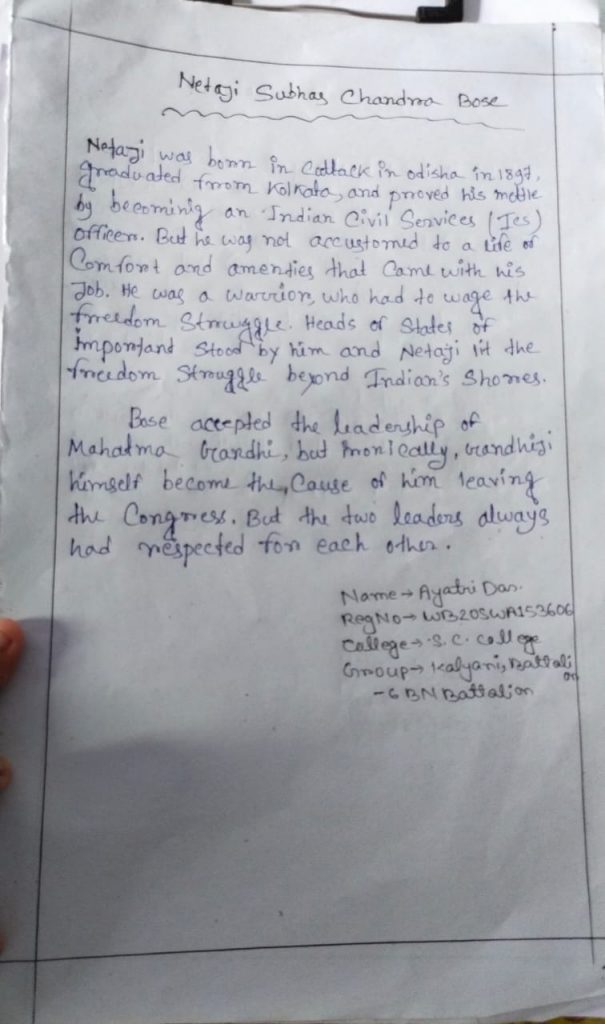 Netaji Subhas Chandra Bose
Netaji was born in Cottack in odisha in 1897,
graduated from Kolkata, and proved his mettle
by becominig an Indian Civil Services (Ies)
officer. But he was not accustomed to a life of
Comfort and amenties that Came with his
Job. He was a warrior, who had to wage the
freedom Struggle. Heads of States of
importand stood by him and Netaji lit the
freedom Strouggle beyond Indian's Shores.
Bose accepted the leadership of
Mahatma Grandhi, but ironically, Grandhiji
himself become the, Cause of him leaving
the Congress. But the two leaders always
had respected for each other.
Name → Ayatri Das.
Reg No → WB20SWA153606
College → S. C. College
Group → Kalyani, Battali
on
- 6 BN Battalion